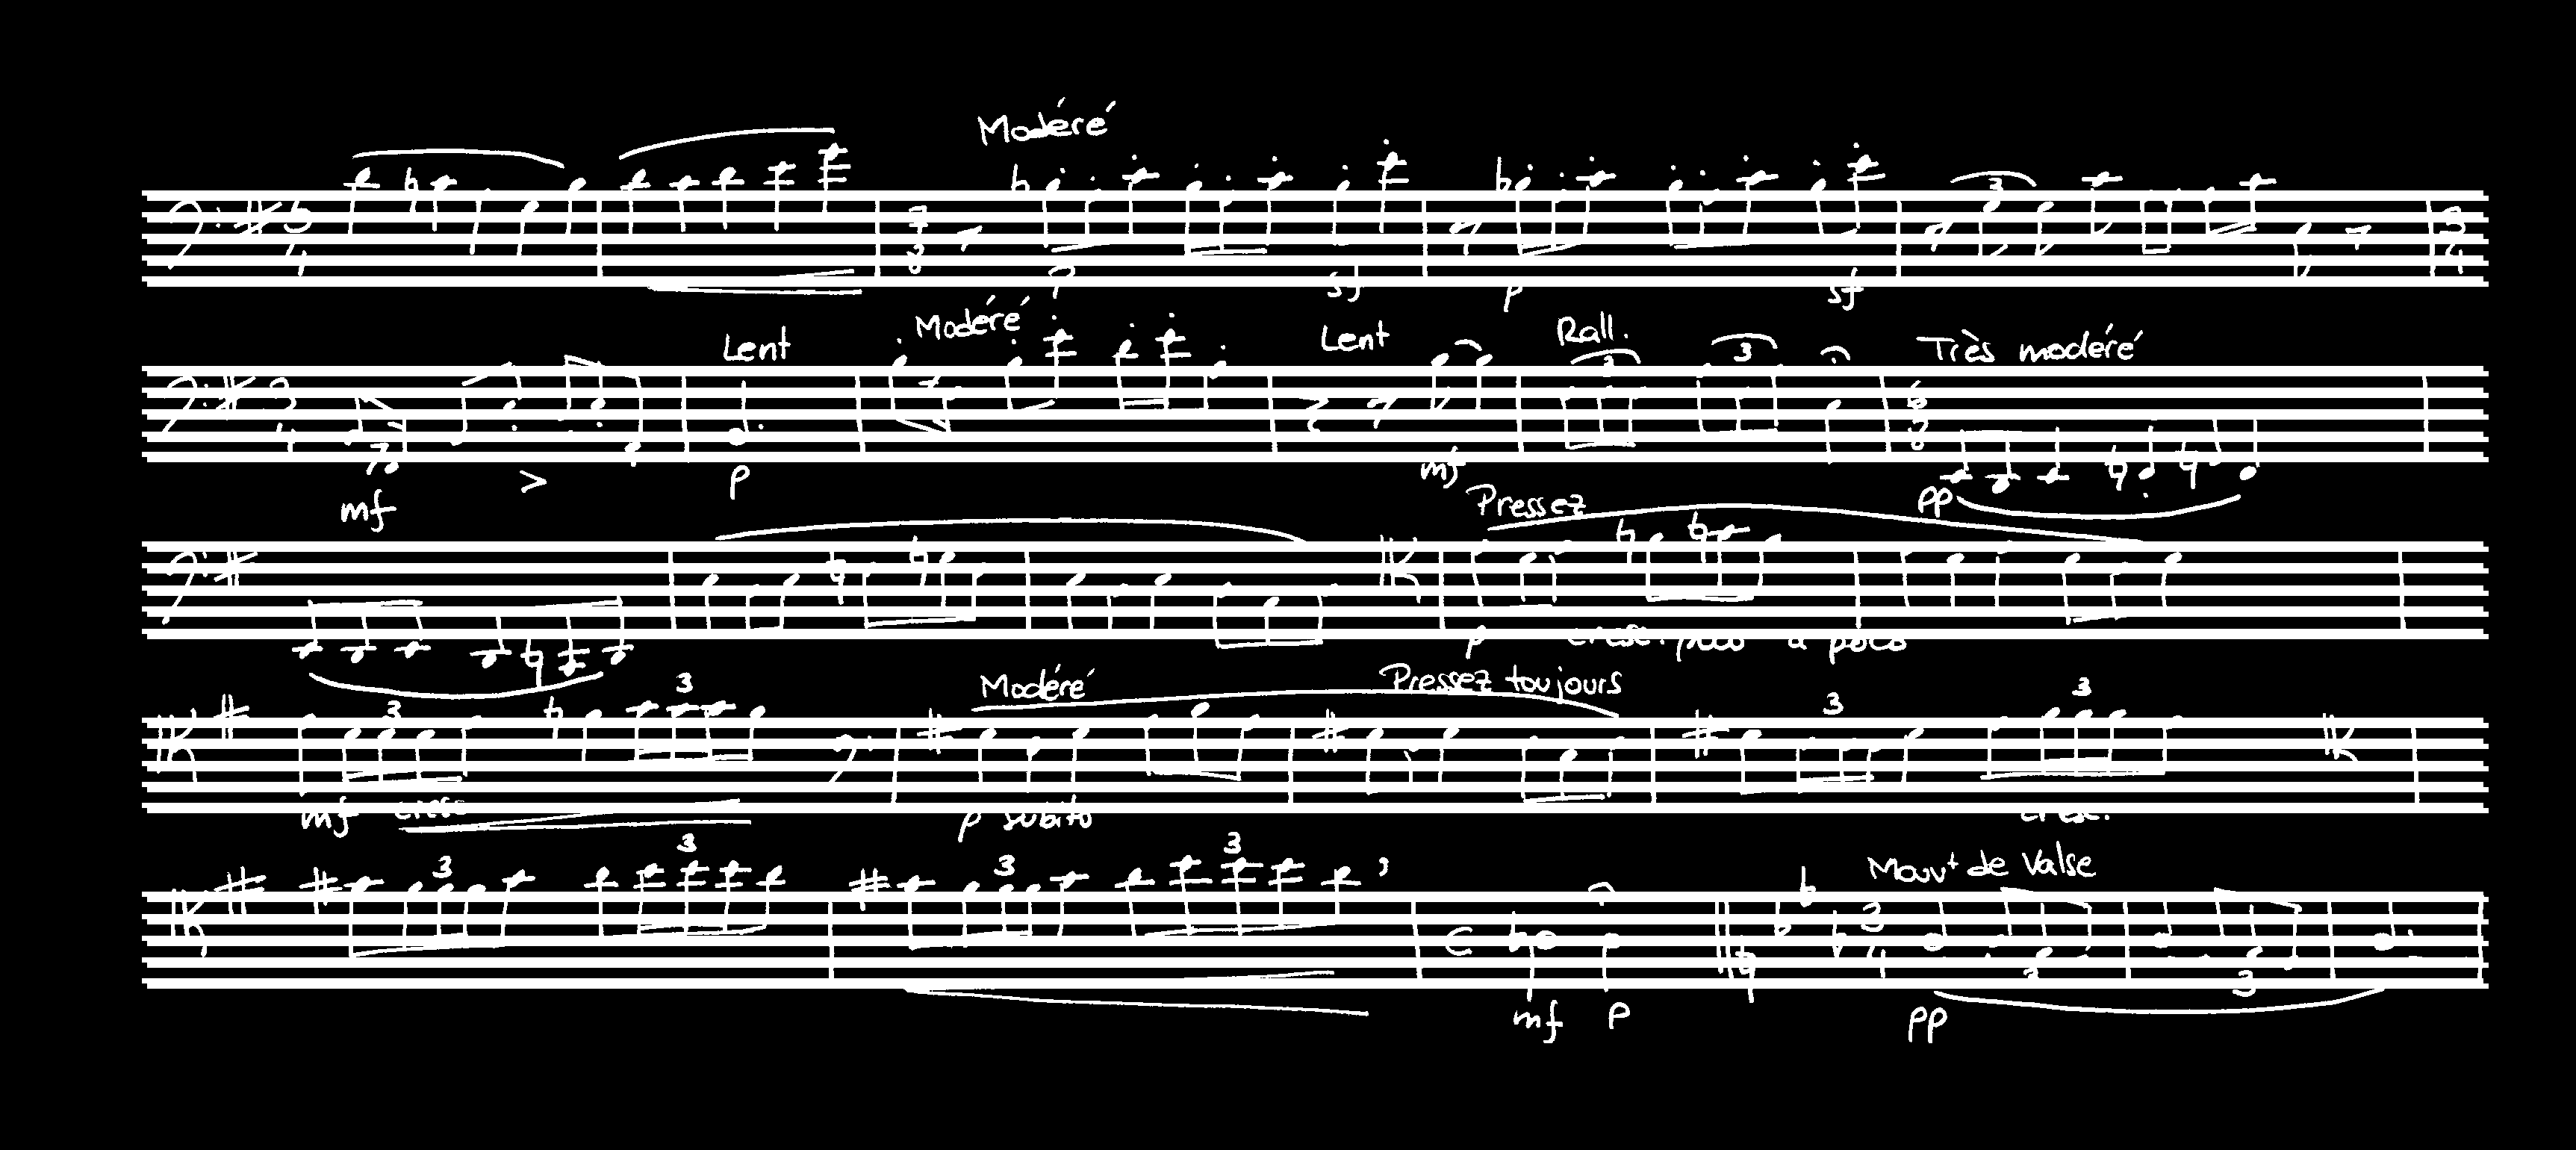 Modéré
3 4 3 7 8 p sf p sf 3 3 4
Lent Modéré Lent Rall. Très modéré
3 4 3 3 6 8
mf > p mf pp
Pressez
p cresc. poco a poco
Modéré Pressez toujours
3 3 3 3
mf cresc p subito cresc.
3 3 3 3 Mouvt de Valse
3 4 3 3
mf p pp